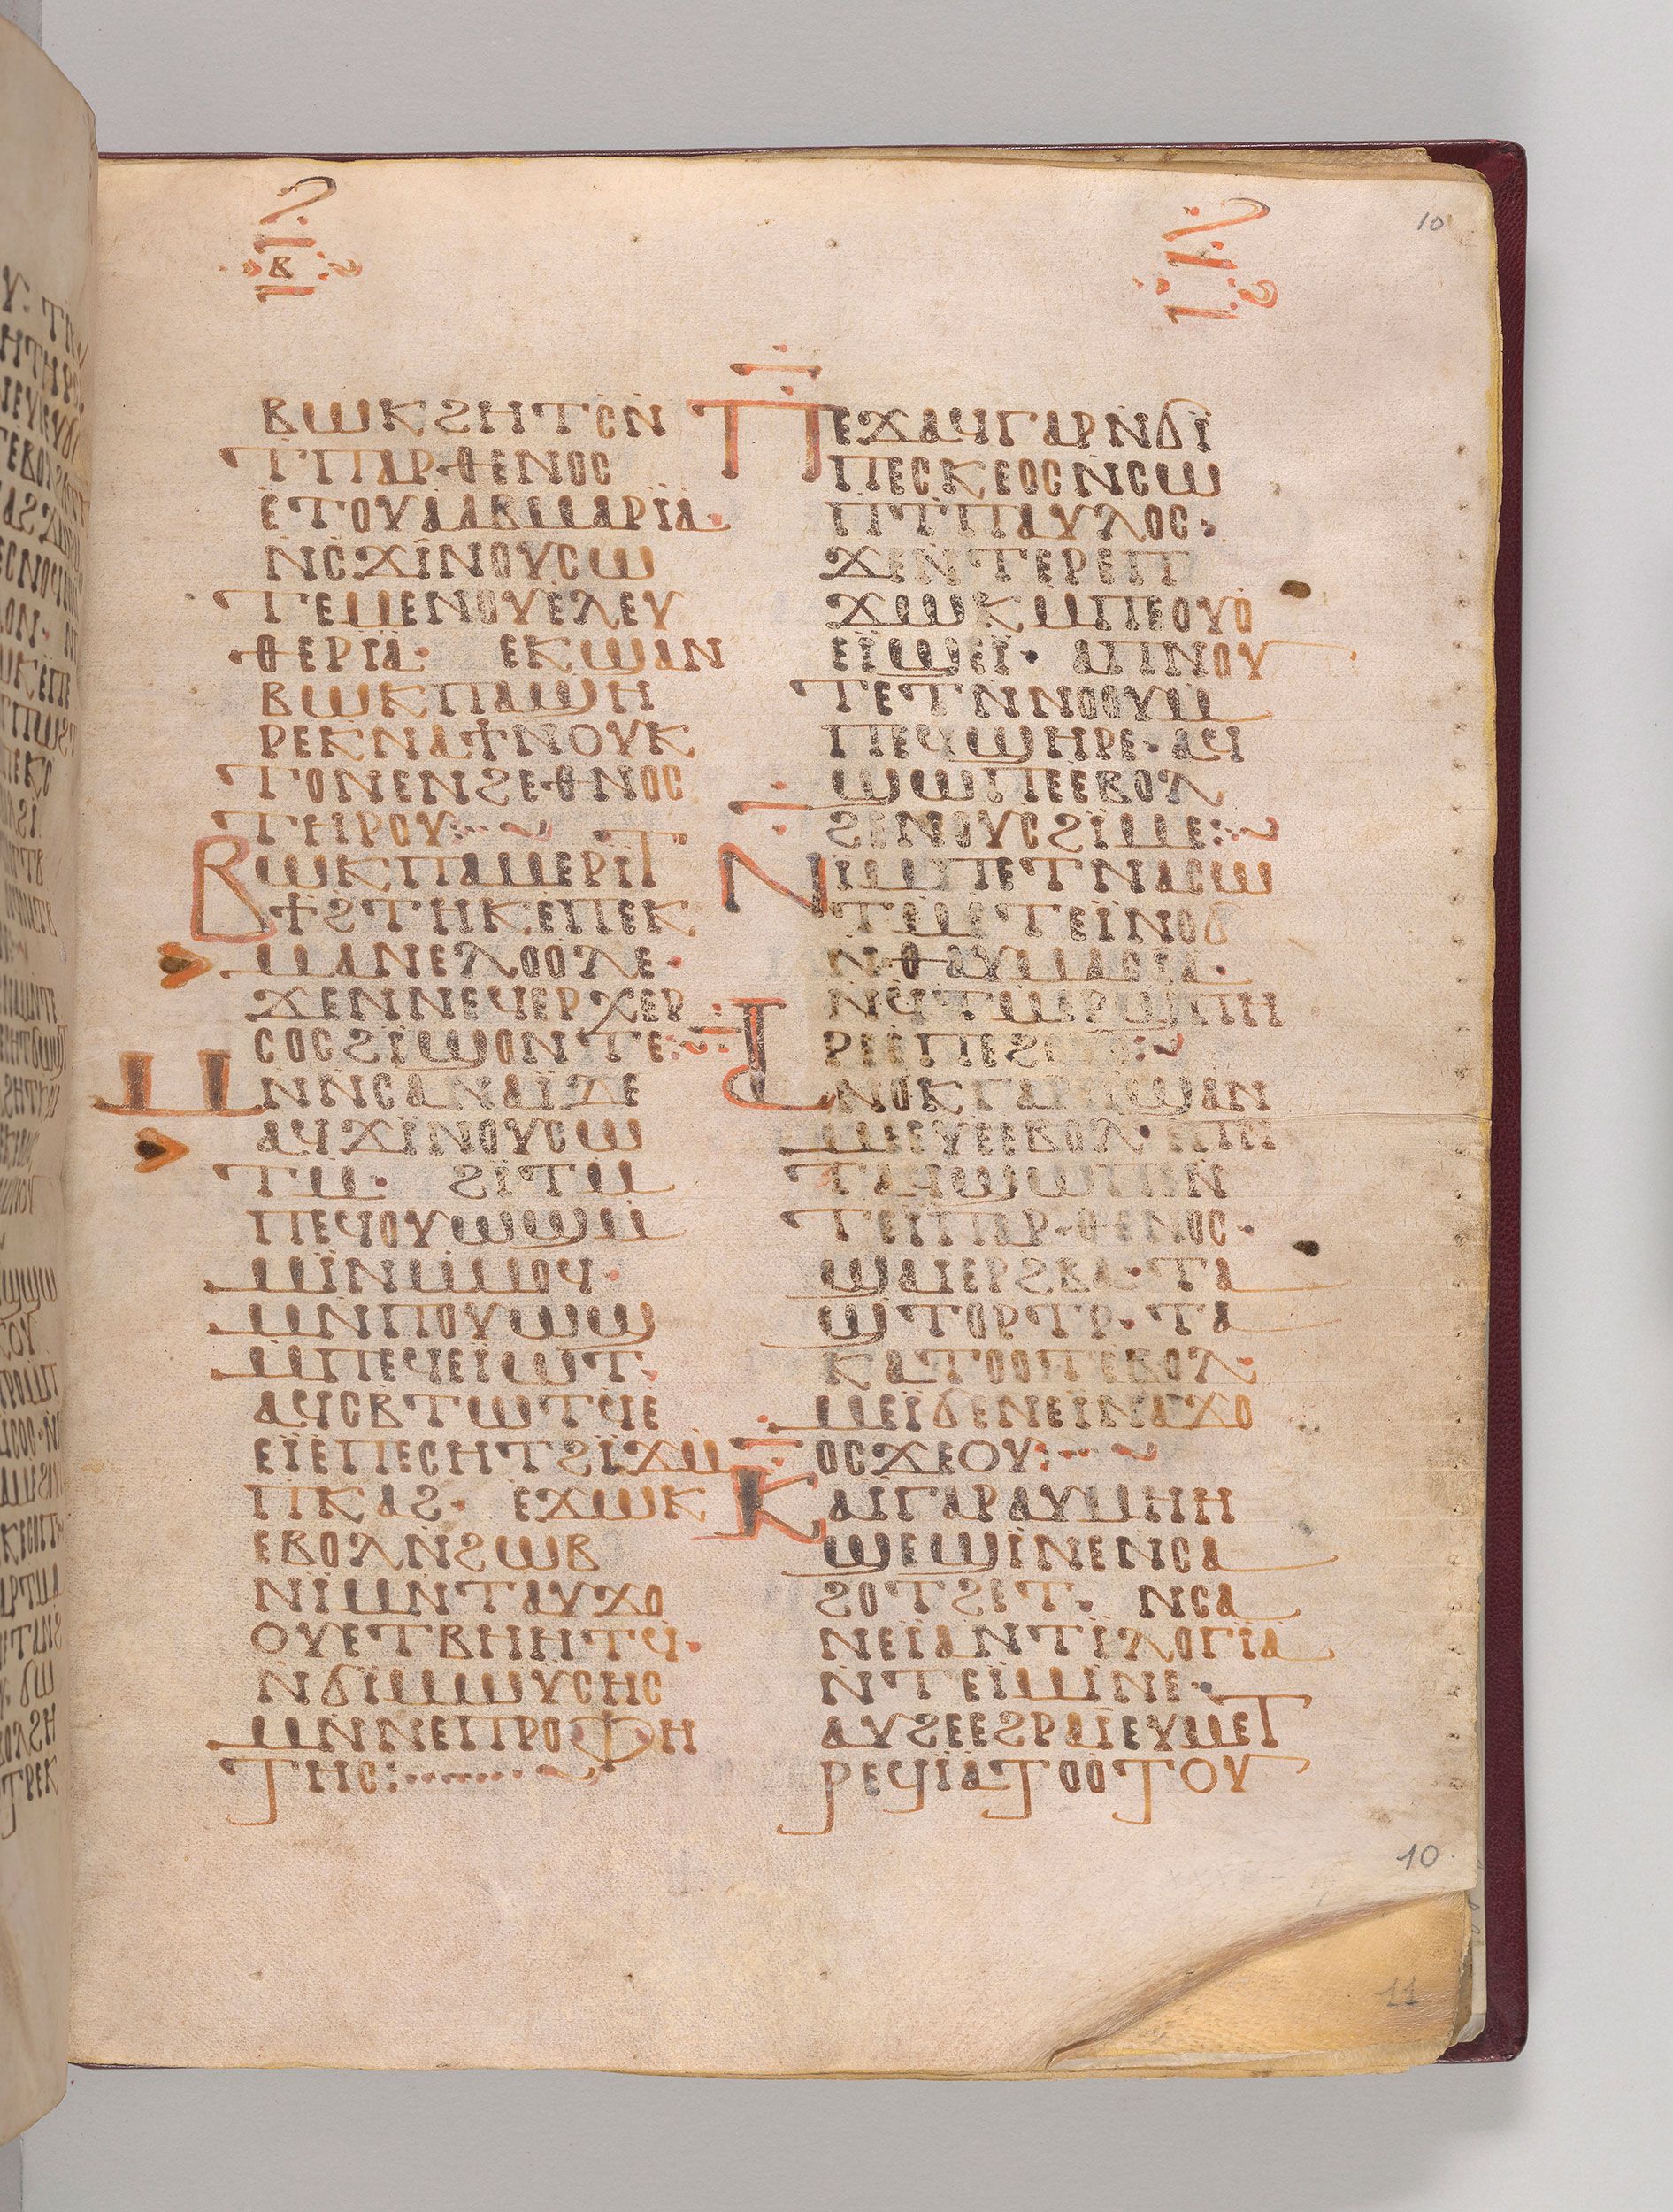 ⲃ
10
ⲃⲱⲕϩⲏⲧⲥ̇ⲛ̇
ⲧ̇ⲡⲁⲣⲑⲉⲛⲟⲥ
ⲉ̇ⲧⲟⲩⲁⲁⲃⲙⲁⲣⲓ̈ⲁ·
ⲛ̇ⲥϫⲓ̈ⲛⲟⲩⲥⲱ
ⲧⲉⲙⲉⲛⲟⲩⲉ̇ⲗⲉⲩ
ⲑⲉⲣⲓ̈ⲁ· ⲉⲕϣⲁⲛ
ⲃⲱⲕⲡⲁϣⲏ
ⲣⲉⲕⲛⲁϯⲛⲟⲩⲕ
ⲧⲟⲛⲉⲛϩⲉⲑⲛⲟⲥ
ⲧⲏⲣⲟⲩ:
ⲃⲱⲕⲡⲁⲙⲉⲣⲓ̈ⲧ
ϯϩⲧⲏⲕⲉⲡⲉⲕ
ⲙⲁⲛⲉⲗⲟⲟⲗⲉ·
ϫⲉⲛⲛⲉϥⲉⲣⲭⲉⲣ
ⲥⲟⲥϩⲓ̈ϣⲟⲛⲧⲉ:
ⲙⲛ̇ⲛ̇ⲥⲁⲛⲁⲓ̈ⲇⲉ
ⲁϥϫⲓ̈ⲛⲟⲩⲥⲱ
ⲧⲙ̇· ϩⲓ̈ⲧⲙ̇
ⲡⲉϥⲟⲩⲱϣⲙ̇
ⲙⲓ̈ⲛⲙ̇ⲙⲟϥ·
ⲙⲛ̇ⲡⲟⲩⲱϣ
ⲙ̇ⲡⲉϥⲉⲓ̈ⲱⲧ·
ⲁϥⲥⲃⲧⲱⲧϥ̇ⲉ̇
ⲉⲓ̈ⲉ̇ⲡⲉⲥⲏⲧϩⲓ̈ϫⲙ̇
ⲡⲕⲁϩ· ⲉϫⲱⲕ
ⲉⲃⲟⲗⲛ̇ϩⲱⲃ
ⲛⲓ̈ⲙⲛ̇ⲧⲁⲩϫⲟ
ⲟⲩⲉⲧⲃⲏⲏⲧϥ̇·
ⲛ̇ϭⲓ̈ⲙⲱⲩ̈ⲥⲏⲥ
ⲙⲛ̇ⲛⲉⲡⲣⲟⲫⲏ
ⲧⲏⲥ:
ⲡⲉϫⲁϥⲅⲁⲣⲛ̇ϭⲓ̈
ⲡⲉⲥⲕⲉⲟⲥⲛ̇ⲥⲱ
ⲧⲡ̇ⲡⲁⲩⲗⲟⲥ:
ϫⲉⲛ̇ⲧⲉⲣⲉⲡ
ϫⲱⲕⲙ̇ⲡⲉⲟⲩⲟ̇
ⲉⲓ̈ϣⲉⲓ̈· ⲁⲡⲛⲟⲩ
ⲧⲉⲧⲛ̇ⲛⲟⲟⲩⲙ̇
ⲡⲉϥϣⲏⲣⲉ· ⲁϥ
ϣⲱⲡⲉⲉⲃⲟⲗ
ϩⲉⲛⲟⲩⲥϩⲓ̈ⲙⲉ:
ⲛⲓ̈ⲙⲡⲉⲧⲛⲁⲥⲱ
ⲧⲙ̇ⲉⲧⲉⲓ̈ⲛⲟϭ
ⲛ̇ⲑⲁⲩⲙⲁⲥⲓ̈ⲁ·
ⲛϥ̇ⲧⲙ̇ⲣϣⲡⲏ
ⲁⲛⲟⲕⲅⲁⲣⲉⲓ̈ϣⲁⲛ
ⲙⲉⲩⲉⲉⲃⲟⲗ·
ⲧⲁϥϣⲱⲡⲉⲛ̇
ⲧⲉⲓ̈ⲡⲁⲣⲑⲉⲛⲟⲥ·
ϣⲁⲓⲉⲣϩⲃⲁ· ⲧⲁ
ϣⲧⲟⲣⲧⲣ̇· ⲧⲁ
ⲕⲁⲧⲟⲟⲧⲉⲃⲟⲗ·
ⲙⲉⲓ̈ϭⲉⲛⲉⲓ̈ⲛⲁϫⲟ
ⲟⲥϫⲉⲟⲩ:
ⲕⲁⲓ̈ⲅⲁⲣⲁⲩⲙⲏⲏ
ϣⲉϣⲓ̈ⲛⲉⲛ̇ⲥⲁ
ϩⲟⲧϩⲉⲧ· ⲛⲥⲁ
ⲛⲉⲓ̈ⲁⲛⲧⲓ̈ⲗⲟⲅⲓ̈ⲁ
ⲛ̇ⲧⲉⲓ̈ⲙⲓ̈ⲛⲉ·
ⲁⲩϩⲉⲉϩⲣⲁⲓ̈ⲉⲩⲙⲉⲧ
ⲣⲉϥⲓ̈ⲁⲧⲟⲟⲧⲟⲩ
10
11